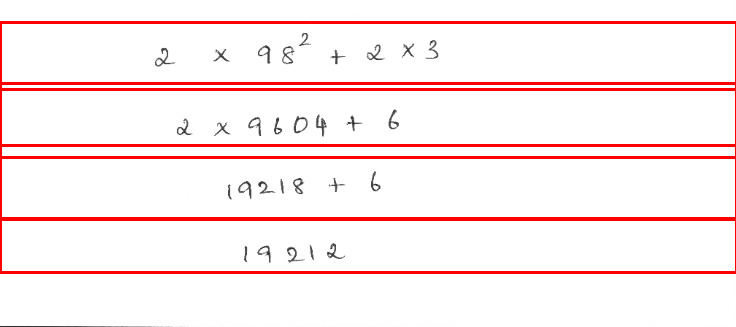 2 × 98² + 2 × 3
2 × 9604 + 6
19218 + 6
19212